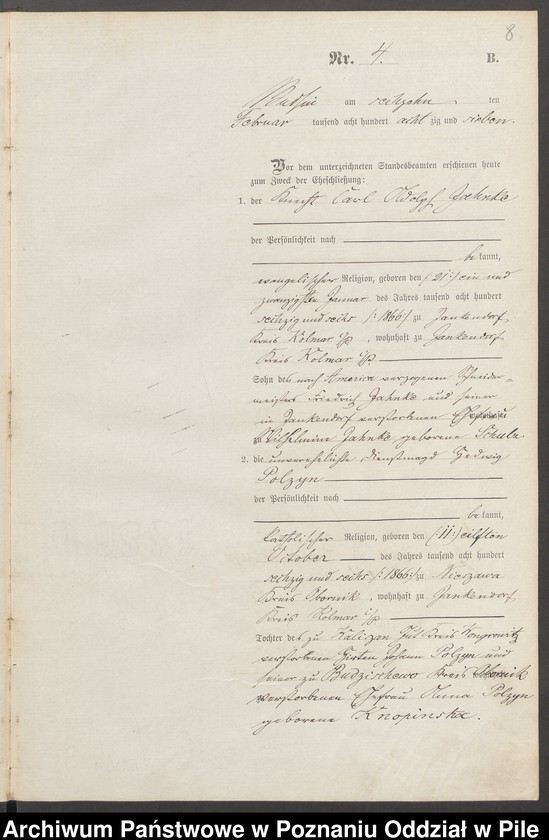 8
Nr. 4. B.
Budsin am sechzehn ten
Februar tausend acht hundert achtzig und sieben.
Vor dem unterzeichneten Standesbeamten erschienen heute
zum Zweck der Eheschließung:
1. der Knecht Carl Adolf Jahnke
der Persönlichkeit nach
bekannt,
evangelischer Religion, geboren den /:21:/ ein und
zwanzigsten Januar des Jahres tausend acht hundert
sechzig und sechs /:1866:/ zu Jankendorf,
Kreis Kolmar i/p., wohnhaft zu Jankendorf,
Kreis Kolmar i/p.
Sohn des nach America verzogenen Schneider-
meisters Friedrich Jahnke und seiner
in Jankendorf verstorbenen Ehefrau
zu Wilhelmine Jahnke geborene Schulz
2. die unverehelichte Dienstmagd Hedwig
Polzyn
der Persönlichkeit nach
bekannt,
katholischer Religion, geboren den /:11:/ eilften
October des Jahres tausend acht hundert
sechzig und sechs /:1866:/ zu Nieszawa
Kreis Obornik, wohnhaft zu Jankendorf,
Kreis Kolmar i/p.
Tochter des zu Kaliszan Gut Kreis Wongrowitz
verstorbenen Hirten Johann Polzyn und
seiner zu Budzischewo Kreis Obornik
verstorbenen Ehefrau Anna Polzyn
geborene Knopinska.
Archiwum Państwowe w Poznaniu Oddział w Pile